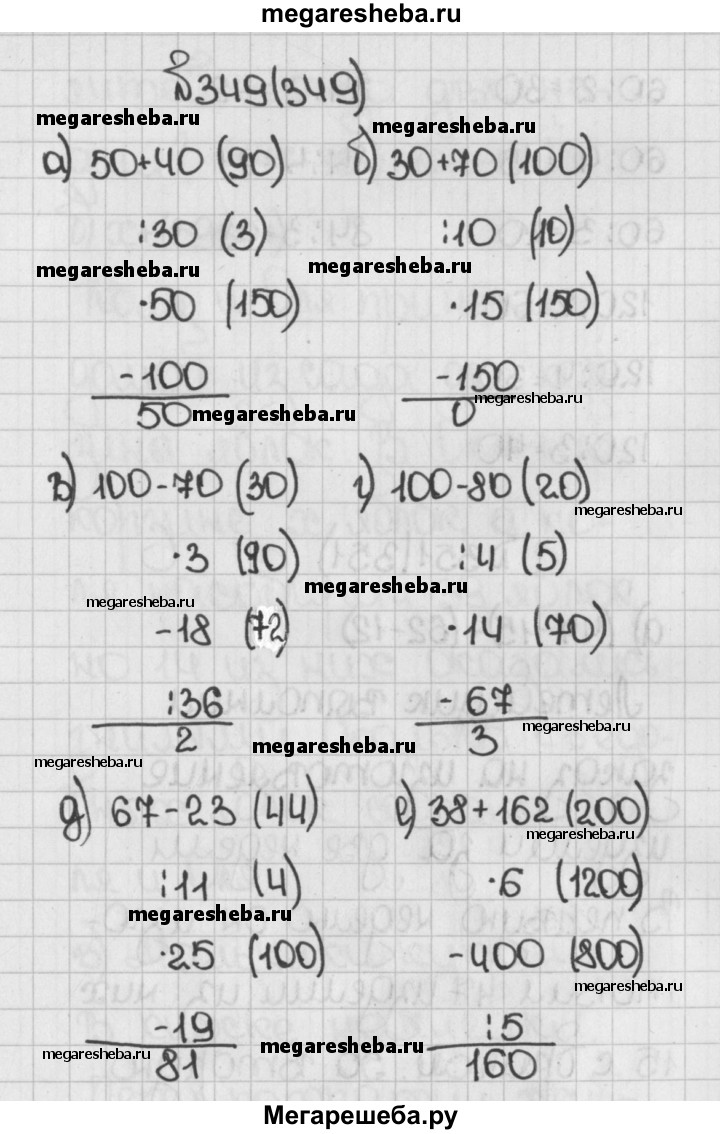 megaresheba.ru
№349(349)
megaresheba.ru megaresheba.ru
а) 50+40 (90) б) 30+70 (100)
:30 (3) :10 (10)
megaresheba.ru megaresheba.ru
·50 (150) ·15 (150)
-100 -150
50 megaresheba.ru 0 megaresheba.ru
в) 100-70 (30) г) 100-80 (20)
megaresheba.ru
·3 (90) :4 (5)
megaresheba.ru megaresheba.ru
-18 (72) ·14 (70)
:36 -67
2 megaresheba.ru 3 megaresheba.ru
megaresheba.ru
д) 67-23 (44) е) 38+162 (200)
megaresheba.ru
:11 (4) ·6 (1200)
megaresheba.ru
·25 (100) -400 (800)
megaresheba.ru
-19 :5
megaresheba.ru 81 megaresheba.ru 160
Мегарешеба.ру